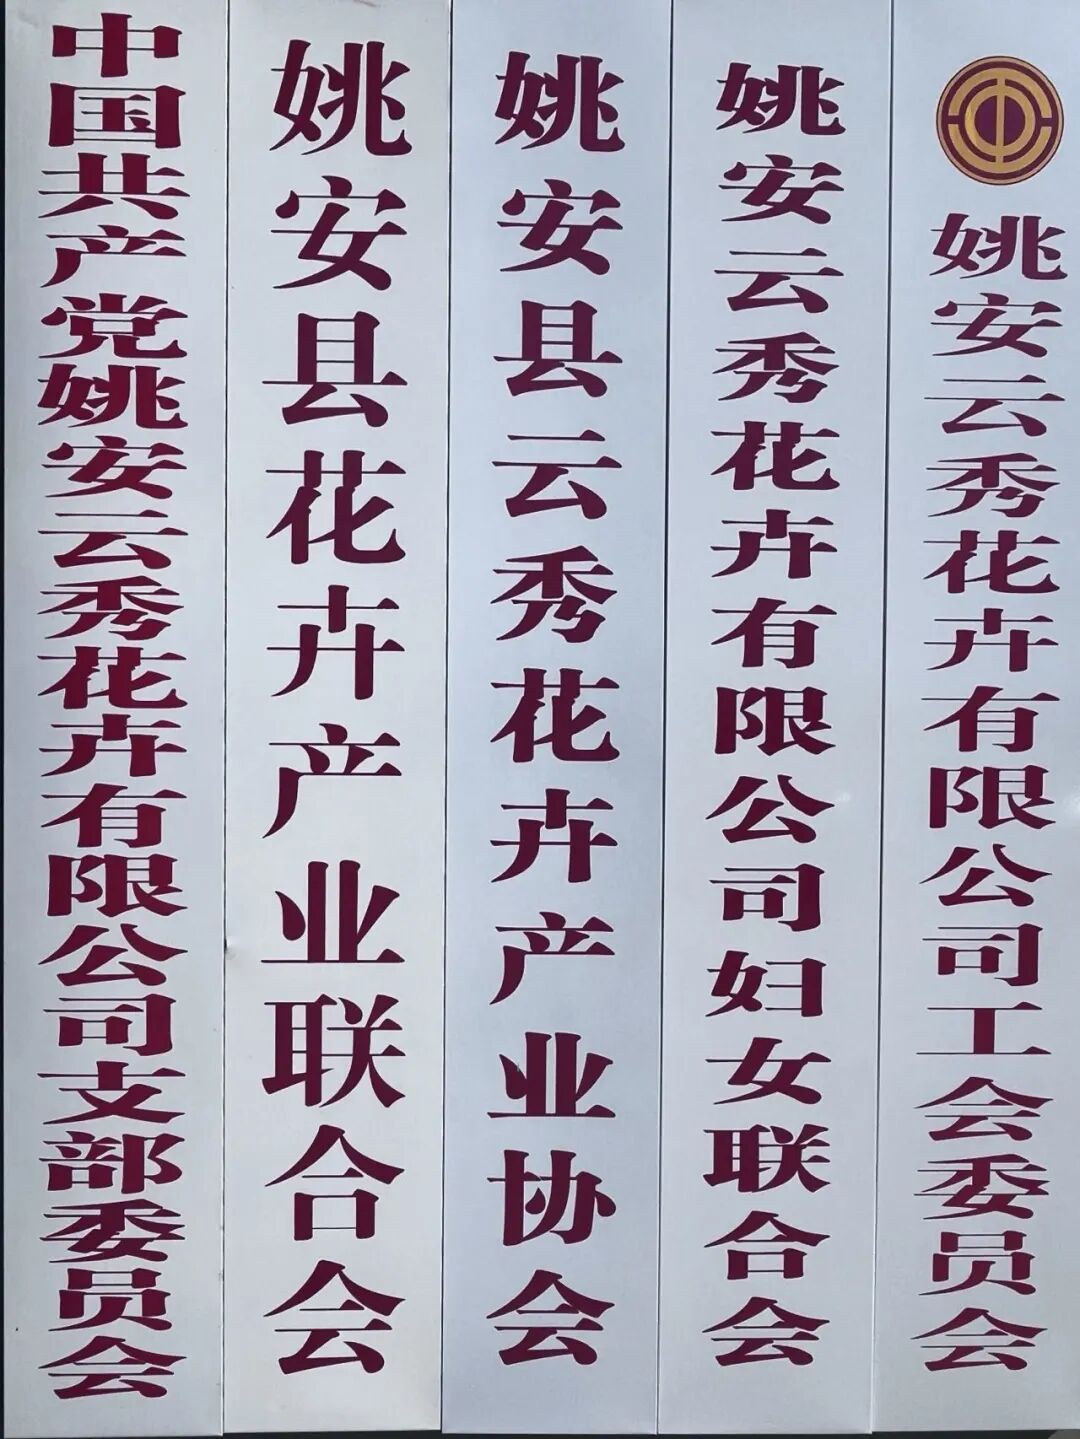 中国共产党姚安云秀花卉有限公司支部委员会
姚安县花卉产业联合会
姚安县云秀花卉产业协会
姚安云秀花卉有限公司妇女联合会
姚安云秀花卉有限公司工会委员会